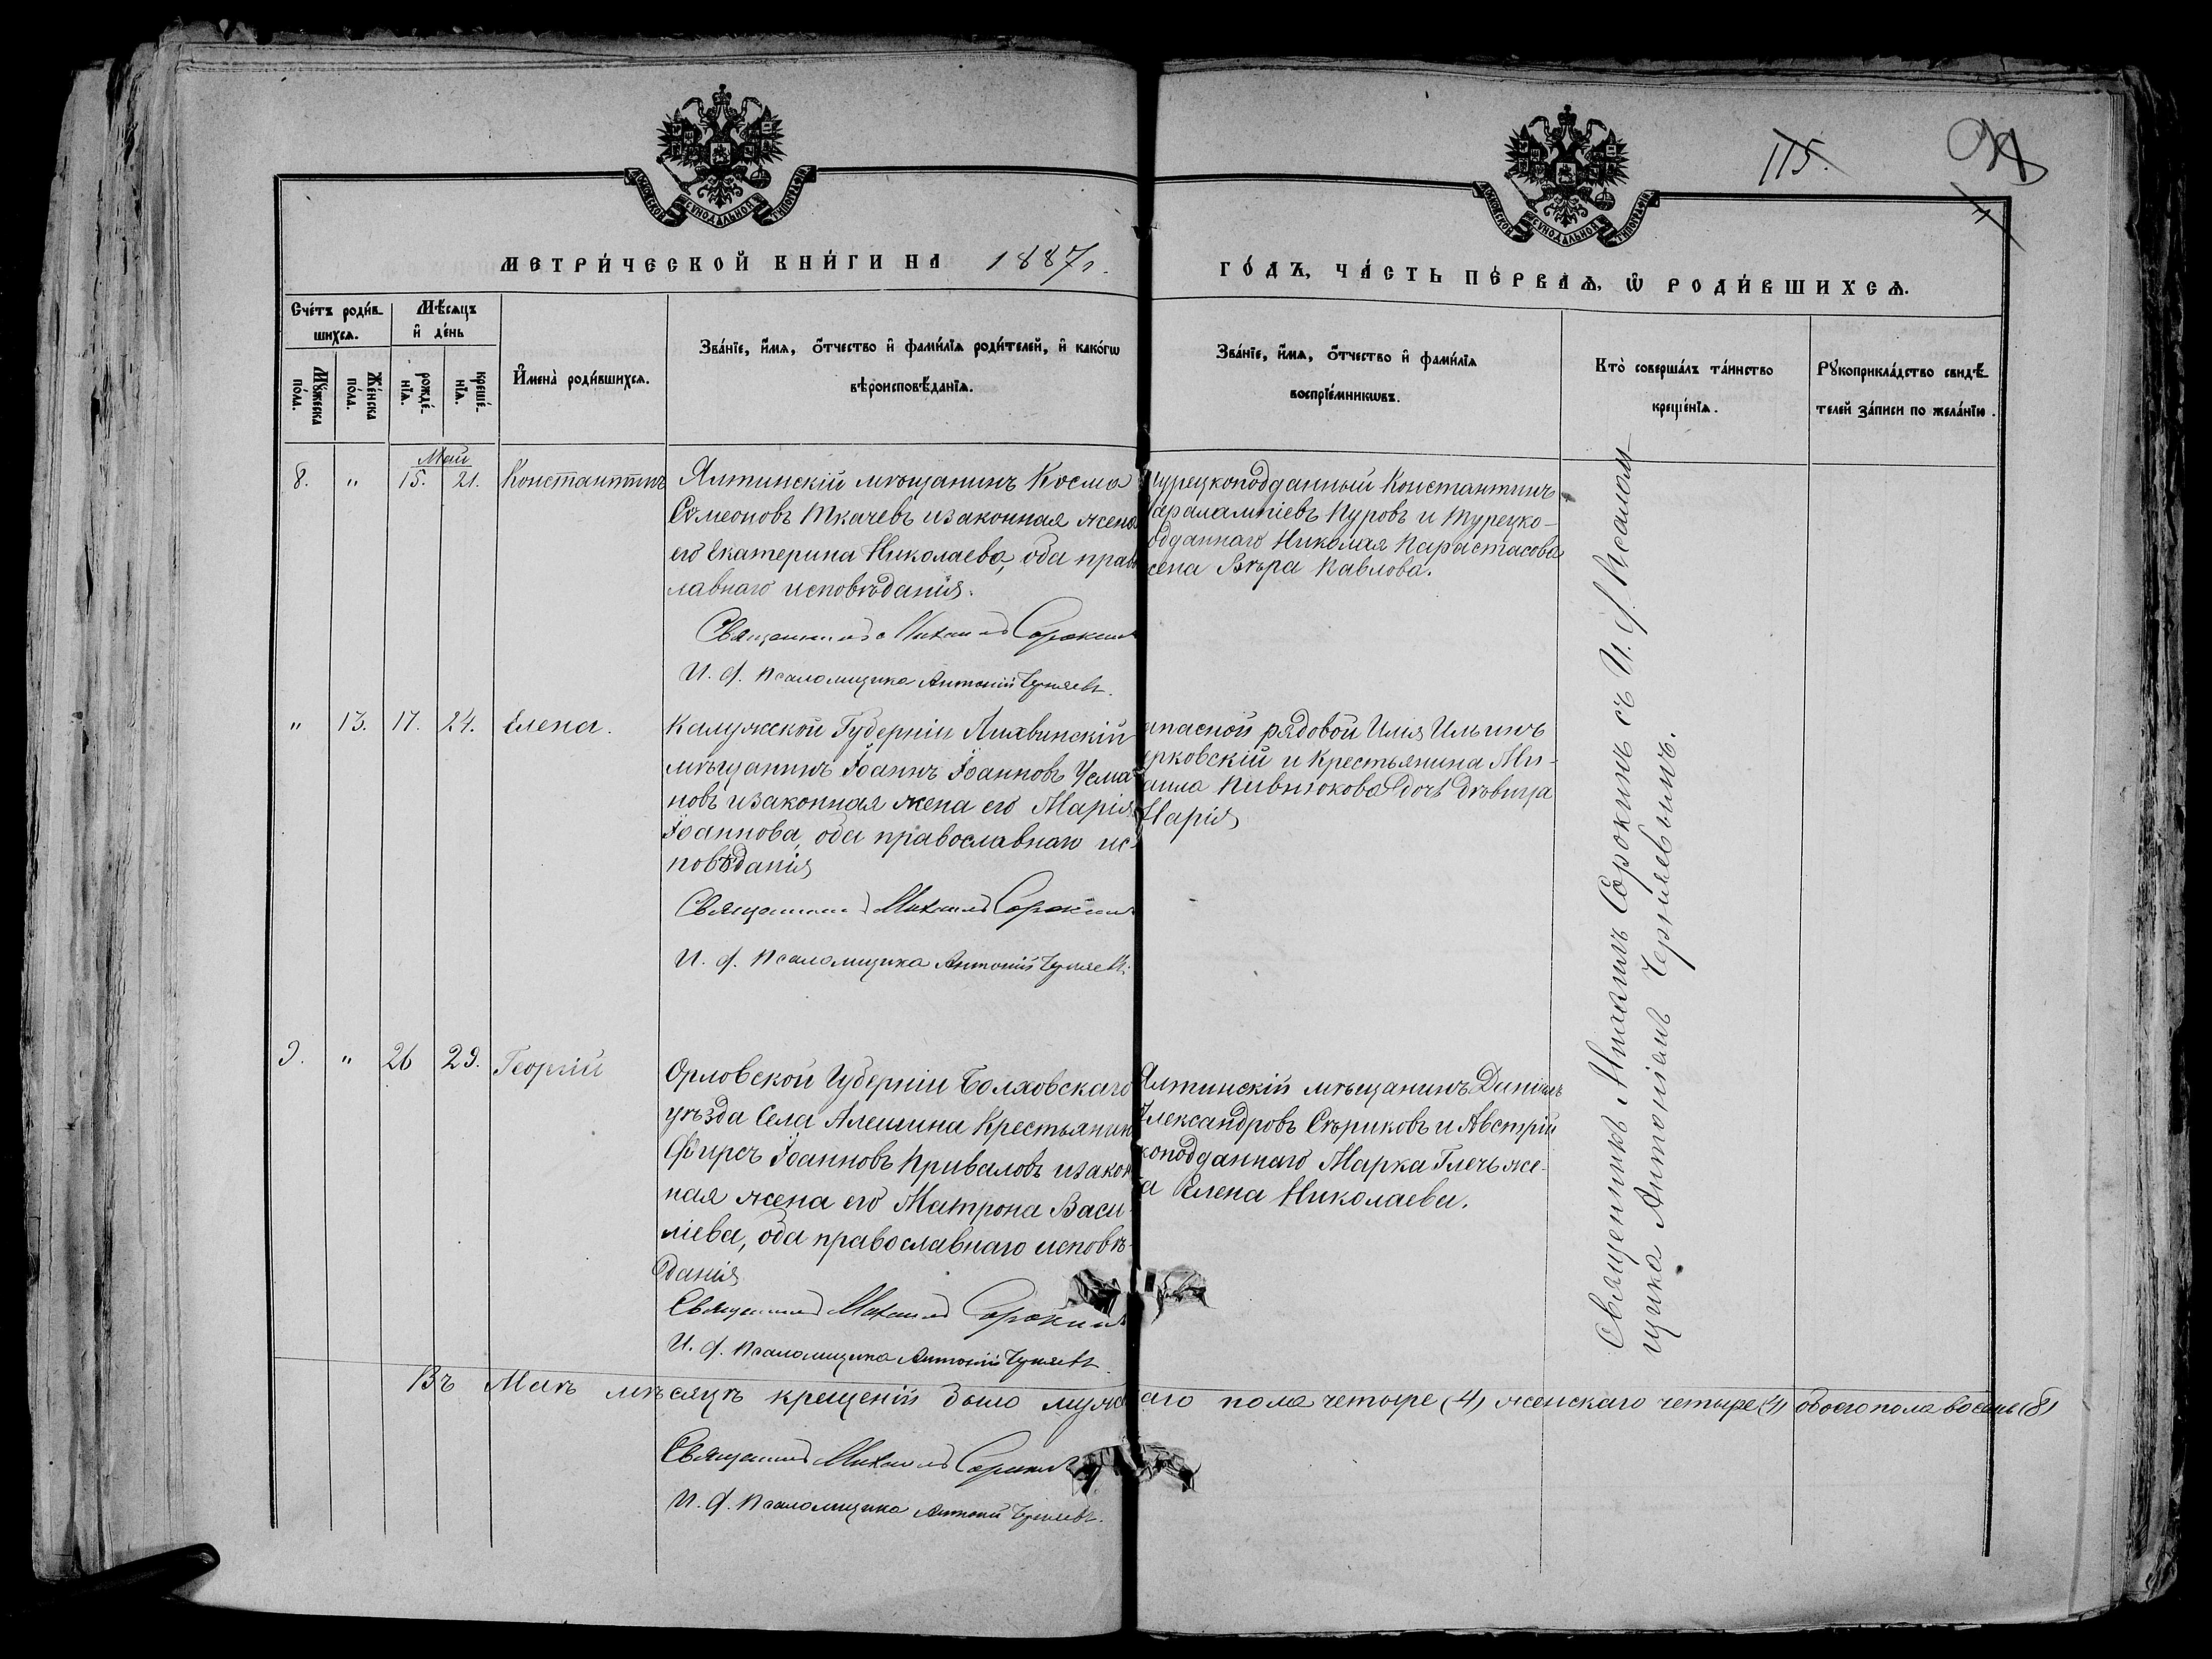 115.
МОСКОВСКОЙ СѴНОДАЛЬНОЙ ТИПОГРАФІИ
МОСКОВСКОЙ СѴНОДАЛЬНОЙ ТИПОГРАФІИ
МЕТРИ́ЧЕСКОЙ КНИ́ГИ НА 1887 г.
ГО́ДЪ, ЧА́СТЬ ПЕ́РВАѦ, Ѽ РОДИ́ВШИХСѦ.
Сче́тъ роди́в-
шихсѧ.
Мѣ́сѧцъ
и҆ де́нь
Мꙋ́жеска
по́ла.
Же́нска
по́ла.
рожде́-
нїѧ.
креще́-
нїѧ.
И҆мена̀ роди́вшихсѧ.
Зва́нїе, и҆́мѧ, ѻ҆́тчество и҆ фами́лїѧ роди́телей, и҆ како́гѡ
вѣроисповѣ́данїѧ.
Зва́нїе, и҆́мѧ, ѻ҆́тчество и҆ фами́лїѧ
воспрїе́мникѡвъ.
Кто̀ соверша́лъ та́инство
креще́нїѧ.
Рꙋкоприкла́дство свидѣ́-
телей за́писи по жела́нїю.
Май
8. " 15. 21. Константинъ
Ялтинскій мѣщанинъ Косма
Симеоновъ Ткачевъ и законная жена
его Екатерина Николаева, оба право
лавнаго исповѣданія.
Священникъ Михаилъ Сорокинъ
И. д. Псаломщика Антоній Черняевъ.
урецкоподданный Константинъ
аралампіевъ Куровъ и Турецко-
одданнаго Николая Карастасова
жена Вѣра Павлова.
" 13. 17. 24. Елена.
Калужской Губерніи Лихвинскій
мѣщанинъ Іоаннъ Іоанновъ Усма
новъ и законная жена его Марія
Іоаннова, оба православнаго ис-
повѣданія
Священникъ Михаилъ Сорокинъ
И. д. Псаломщика Антоній Черняевъ.
апасной рядовой Илія Ильинъ
ерковскій и Крестьянина Ми-
аила Пивнюкова дочь дѣвица
Марія
9. " 26 29. Георгій
Орловской Губерніи Болховскаго
уѣзда Села Алешина Крестьянин
Фирсъ Іоанновъ Приваловъ и закон
ная жена его Матрона Васи-
ліева, оба православнаго исповѣ-
данія
Священникъ Михаилъ Сорокинъ
И. д. Псаломщика Антоній Черняевъ
Ялтинскій мѣщанинъ Даніилъ
Александровъ Сѣриковъ и Австрій
коподданнаго Марка Глечь же-
а Елена Николаева.
Священникъ Михаилъ Сорокинъ съ И. д. Псалом
щика Антоніемъ Черняевымъ.
Въ Маѣ мѣсяцѣ крещеній было мужс
аго пола четыре (4) женскаго четыре (4) обоего пола восемь (8)
Священникъ Михаилъ Сорокинъ
И. д. Псаломщика Антоній Черняевъ.